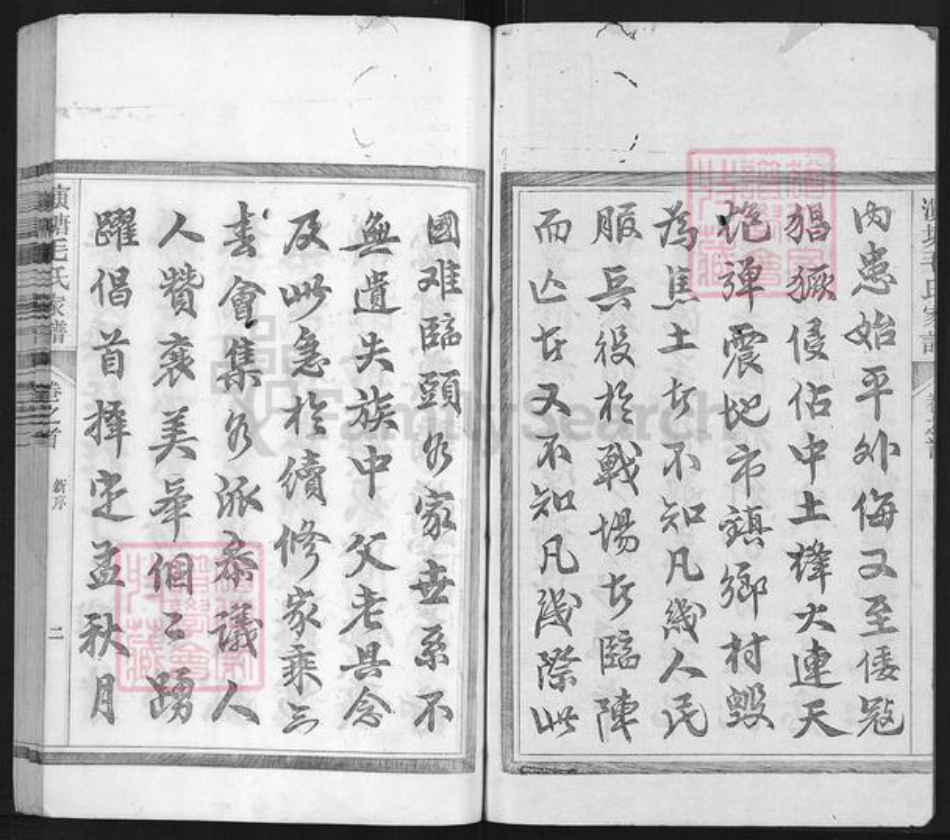 内患始平外侮又至倭寇
猖獗侵佔中土烽火連天
炮彈震地市鎮鄉村毀
為焦土者不知凡幾人民
服兵役於戰場者臨陣
而亡者又不知凡幾際此
國难臨頭各家世系不
無遺失族中父老具念
及此急於續修家乘立
書會集各派泰議人
人贊襄美舉個々踴
躍倡首擇定孟秋月
毛氏家譜
卷之首
新序
二
FamilySearch